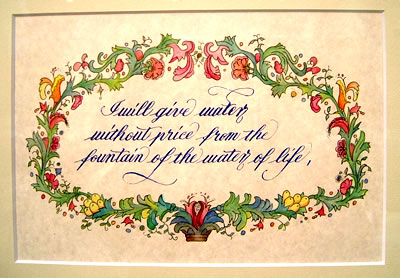 I will give water
without price from the
fountain of the water of life,